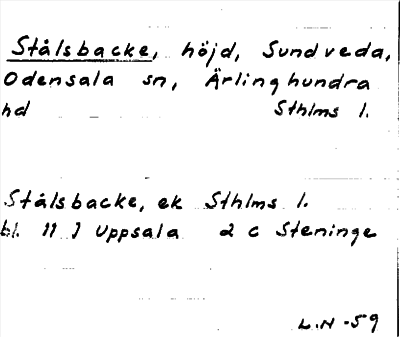 Stålsbacke, höjd, Sundveda,
Odensala sn, Ärlinghundra
hd Sthlms l.
Stålsbacke, ek Sthlms l.
bl. 11 I Uppsala 2 c Steninge
L.N -59